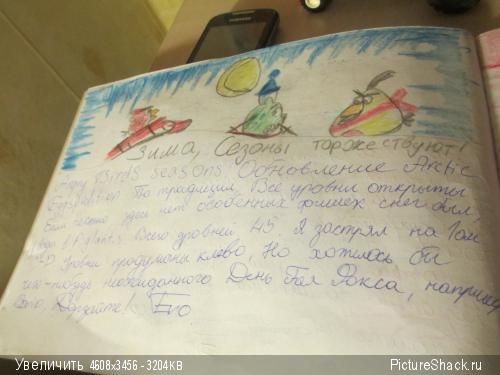 Зима, Сезоны торжествуют!
Angry Birds seasons. Обновление Arctic
Eggspedition По традиции, Все уровни открыты
здесь нет особенных фишек снег был,
Всего уровней 45. Я застрял на 1ом
Уровни продуманы клево, Но хотелось бы
чего-нибудь неожиданного День Гая Фокса, например
Дерзайте!
Увеличить 4608x3456 - 3204KB
PictureShack.ru